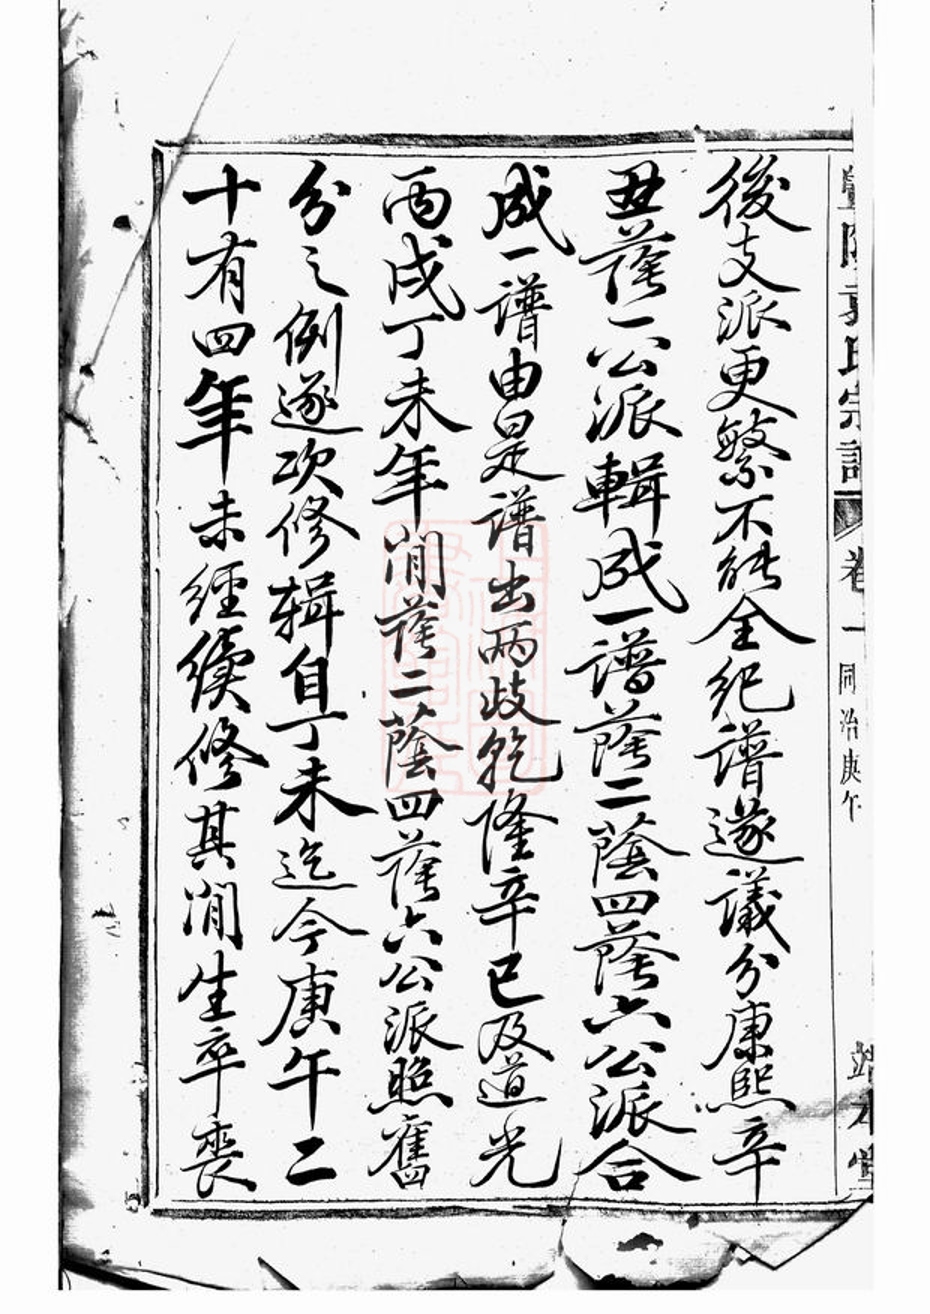 氏宗譜 卷一 同治庚午 本堂
後支派更繁不能全紀譜遂議分康熙辛
丑蔭一公派輯成一譜蔭二蔭四蔭六公派合
成一譜由是譜出兩歧乾隆辛巳及道光
丙戌丁未年間蔭二蔭四蔭六公派照舊
分之例遂次修輯自丁未迄今庚午二
十有四年未經續修其間生卒喪